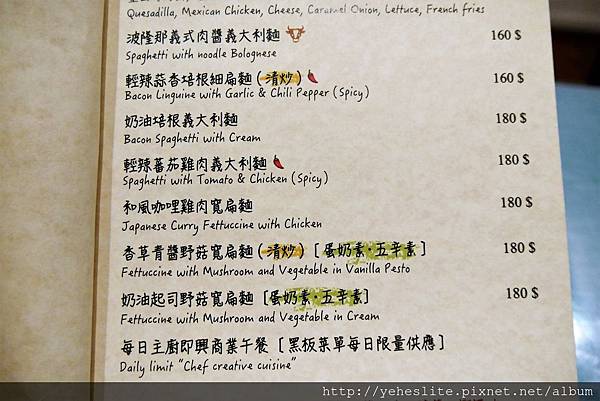 Quesadilla, Mexican Chicken, Cheese, Caramel Onion, Lettuce, French fries
波隆那義式肉醬義大利麵 160 $
Spaghetti with noodle Bolognese
輕辣蒜香培根細扁麵(清炒) 160 $
Bacon Linguine with Garlic & Chili Pepper (Spicy)
奶油培根義大利麵 180 $
Bacon Spaghetti with Cream
輕辣蕃茄雞肉義大利麵 180 $
Spaghetti with Tomato & Chicken (Spicy)
和風咖哩雞肉寬扁麵 180 $
Japanese Curry Fettuccine with Chicken
香草青醬野菇寬扁麵(清炒) [蛋奶素·五辛素] 180 $
Fettuccine with Mushroom and Vegetable in Vanilla Pesto
奶油起司野菇寬扁麵 [蛋奶素·五辛素] 180 $
Fettuccine with Mushroom and Vegetable in Cream
每日主廚即興商業午餐 [黑板菜單每日限量供應]
Daily limit "Chef creative cuisine"
http://yeheslite.pixnet.net/album